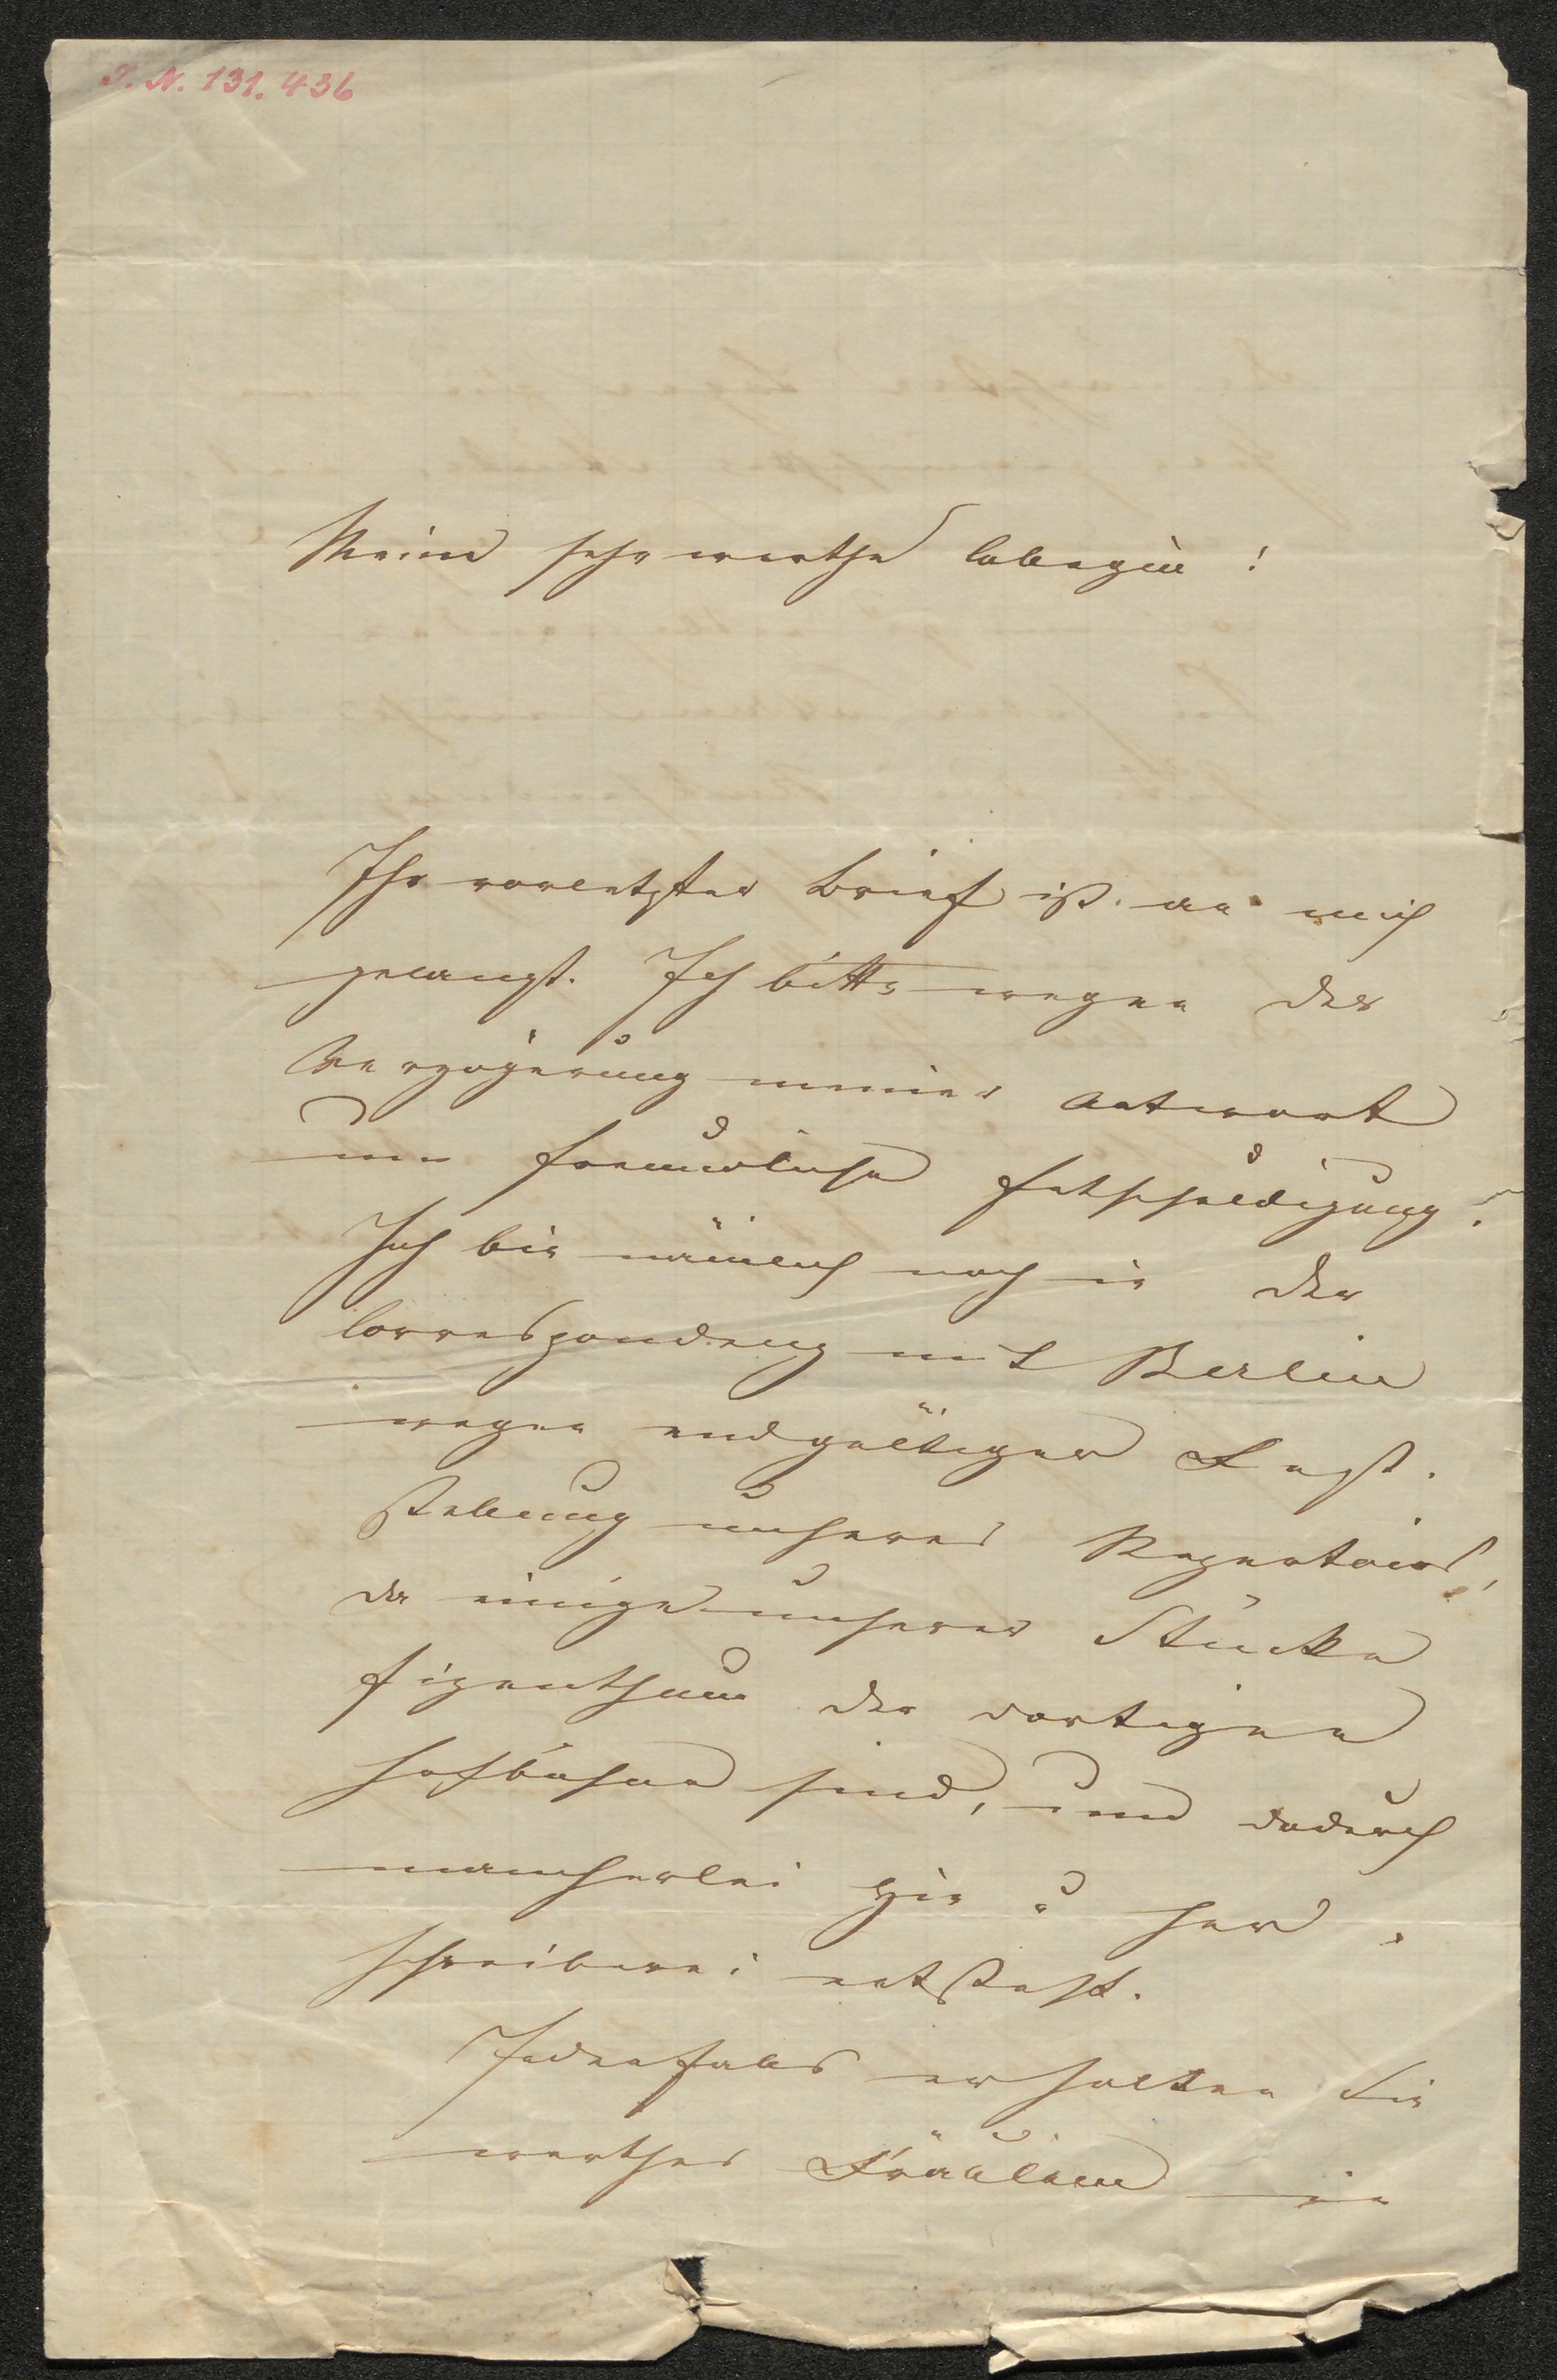 I. N. 131.436
Meine sehr werthe Collegin!
Ihr vorletzter Brief ist an mich
gelangt. Ich bitte wegen der
Verzögerung meiner Antwort
um freundliche Entschuldigung.
Ich bin nämlich noch in der
Correspondenz mit Berlin
wegen endgültiger Fest-
stellung unseres Repertoirs,
da einige unserer Stücke
Eigenthum der dortigen
Hofbühne sind, und dadurch
mancherlei Hin u her-
schreiberei entsteht.
Jedenfalls erhalten Sie
werthes Fräulein in